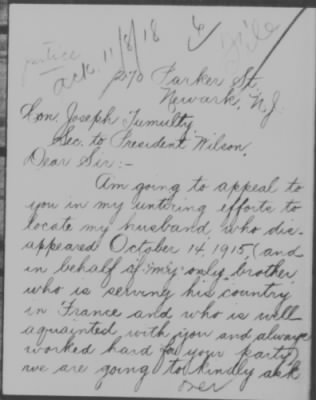 justice
ack. 11/8/18
File
270 Parker St.
Newark, N.J.
Hon. Joseph Tumulty,
Sec. to President Wilson,
Dear Sir:-
Am going to appeal to
you in my untiring efforts to
locate my husband who dis-
appeared October 14, 1915, (and
in behalf of my only brother
who is serving his country
in France and who is well
aquainted with you and always
worked hard for your party)
we are going to kindly ask
over